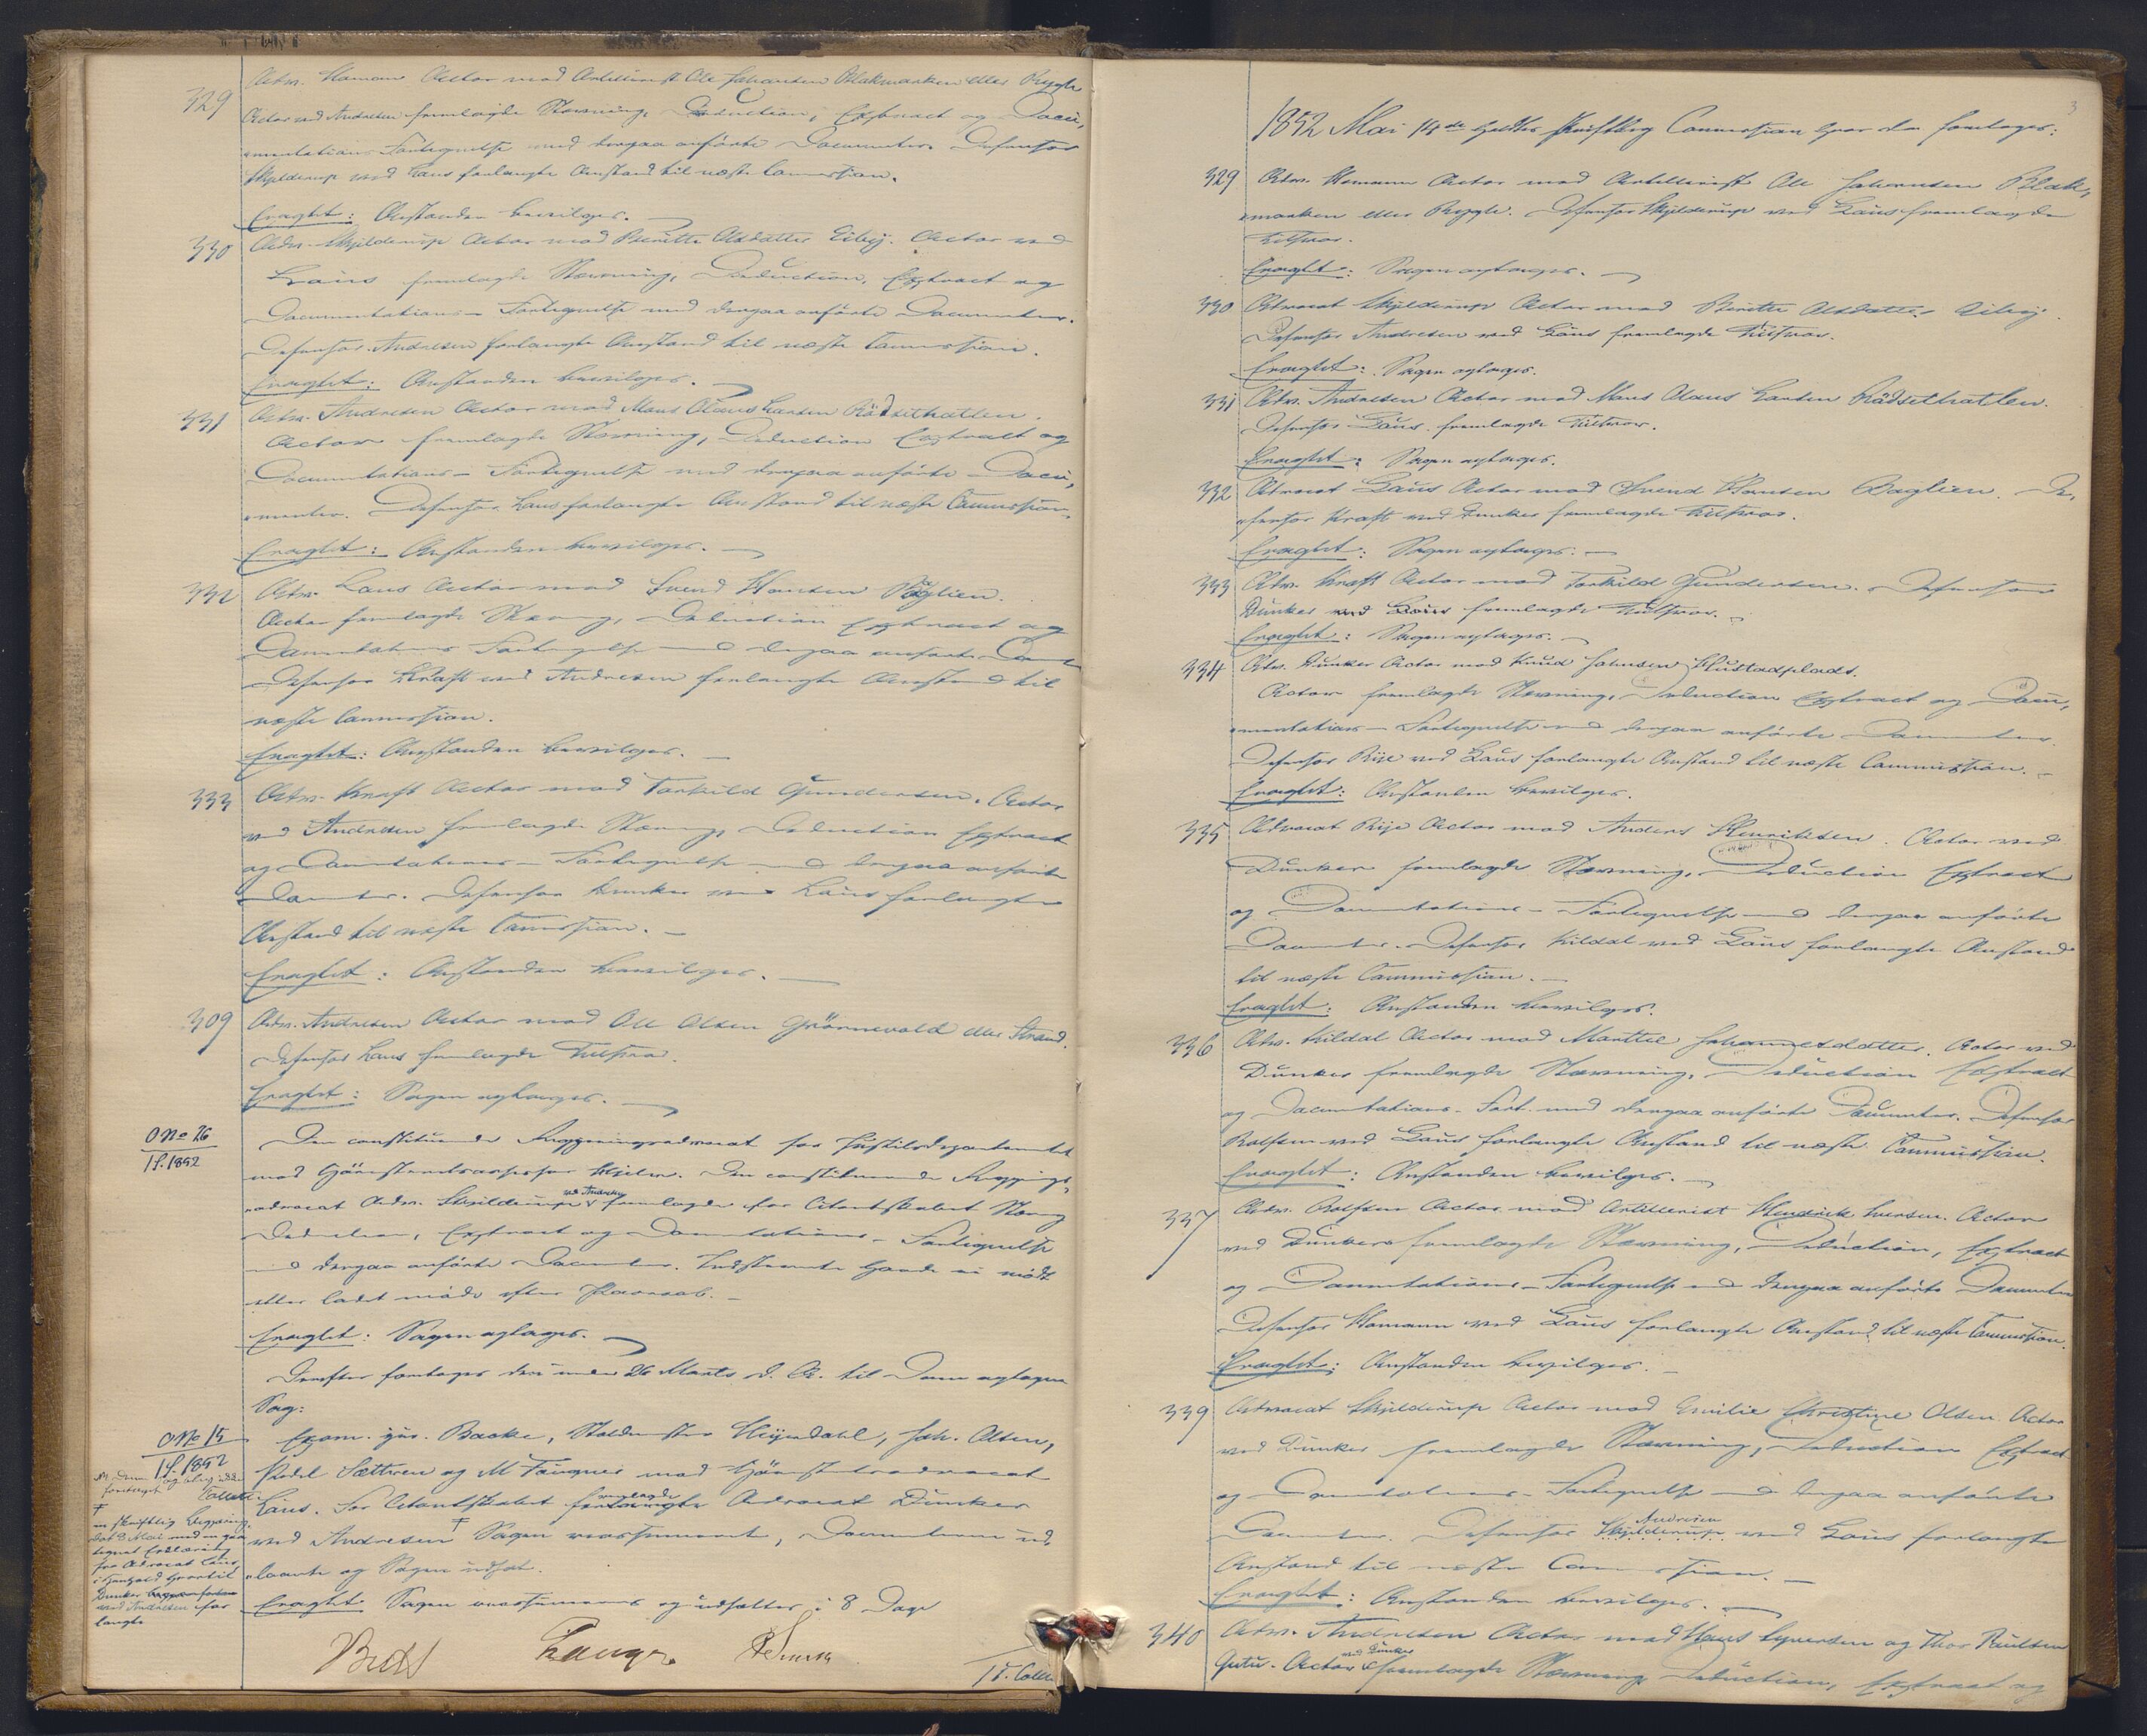 329
Adv. Homann Actor mod Artillerist Ole Johansen Blakmarken eller Bygle
Actor ved Andresen fremlagde Stevning, Deduction, Extract og Docu,
mentations Fortegnelse med derpaa anførte Documenter. Defensor
Skjelderup ved Laus forlangte Anstand til næste Commission.
Eragtet: Anstanden bevilges.
330
Adv. Skjelderup Actor mod Beritte Olsdatter Eiby. Actor ved
Laus fremlagde Stevning, Deduction, Extract og
Documentations-Fortegnelse med derpaa anførte Documenter.
Defensor Andresen forlangte Anstand til næste Commission.
Eragtet: Anstanden bevilges.
331
Adv. Andresen Actor mod Maus Olaus Larsen Rödsethatlen.
Actor fremlagde Stevning, Deduction Extract og
Documentations-Fortegnelse med derpaa anførte Docu,
menter. Defensor Laus forlangte Anstand til næste Commission.
Eragtet: Anstanden bevilges.
332
Adv. Laus Actor mod Svend Hansen Baglien.
Actor fremlagde Stevning, Deduction Extract og
Documentations Fortegnelse med derpaa anførte
Defensor Kraft ved Andresen forlangte Anstand til
næste Commission.
Eragtet: Anstanden bevilges.
333
Adv. Kraft Actor mod Torkild Gundersen. Actor
ved Andresen fremlagde Stevning, Deduction Extract
og Documentations-Fortegnelse med derpaa anførte
Documenter. Defensor Dunker ved Laus forlangte
Anstand til næste Commission.
Eragtet: Anstanden bevilges.
309
Adv. Andresen Actor mod Ole Olsen Grönnevold eller Strand.
Defensor Laus fremlagde Tilsvar.
Eragtet: Sagen optages.
O No 26
1 S. 1852
Den constituerede Regjeringsadvocat for Justitsdepartementet
mod Høiesteretsassessor . Den constituerede Regjerings,
advocat Adv. Skjelderup ved Andresen fremlagde for Citantskabet Stevning
Deduction, Extract og Documentations-Fortegnelse
med derpaa anførte Documenter. Indstevnte havde ei mødt
eller ladet møde efter Paaraab.
Eragtet: Sagen optages.
Derefter foretoges den under 26 Marts d. A. til Dom optagne
Sag:
O No 15
1 S. 1852
Exam. jur. Backe, Heyerdahl, Joh. Olsen,
Sættren og M Tangner mod Høiesteretsadvocat
Laus. For Citantskabet fremlagde Advocat Dunker
ved Andresen Sagen reassumeret, Documenterne ud,
laante og Sagen udsat.
en skriftlig Begjæring
fra Advocat Laus,
i Henhold hvortil
Dunker
ved Andresen for
langte
Eragtet Sagen reassumeres og udsættes i 8 Dage
Lange

3
1852 Mai 14de holdtes skriftlig Commission hvor da foretoges:
329
Adv. Homann Actor mod Artillerist Ole Johannsen Blak,
marken eller Bygle. Defensor Skjelderup ved Laus fremlagde
Tilsvar.
Eragtet: Sagen optages.
330
Advocat Skjelderup Actor mod Beritte Olsdatter Eiby.
Defensor Andresen ved Laus fremlagde Tilsvar.
Eragtet: Sagen optages.
331
Adv. Andresen Actor mod Maus Olaus Larsen Rödsethatlen.
Defensor Laus fremlagde Tilsvar.
Eragtet: Sagen optages.
332
Advocat Laus Actor mod Svend Hansen Baglien. De,
fensor Kraft ved Dunker fremlagde Tilsvar.
Eragtet: Sagen optages.
333
Adv. Kraft Actor mod Torkild Gundersen. Defensor
Dunker ved Laus fremlagde Tilsvar.
Eragtet: Sagen optages.
334
Adv. Dunker Actor mod Knud Johnsen Hustadplads.
Actor fremlagde Stevning, Deduction Extract og Docu,
mentations-Fortegnelse med derpaa anførte Documenter.
Defensor Rije ved Laus forlangte Anstand til næste Commission.
Eragtet: Anstanden bevilges.
335
Advocat Rije Actor mod Anders Henriksen. Actor ved
Dunker fremlagde Stevning, Deduction Extract
og Documentations-Fortegnelse med derpaa anførte
Documenter. Defensor Kildal ved Laus forlangte Anstand
til næste Commission.
Eragtet: Anstanden bevilges.
336
Adv. Kildal Actor mod Marthe Johannesdatter. Actor ved
Dunker fremlagde Stevning, Deduction Extract
og Documentations-Fort. med derpaa anførte Documenter. Defensor
Rolfsen ved Laus forlangte Anstand til næste Commission.
Eragtet: Anstanden bevilges.
337
Adv. Rolfsen Actor mod Artillerist Hendrick Iversen. Actor
ved Dunker fremlagde Stevning, Deduction, Extract
og Documentations-Fortegnelse med derpaa anførte Documenter
Defensor Homann ved Laus forlangte Anstand til næste Commission.
Eragtet: Anstanden bevilges.
339
Advocat Skjelderup Actor mod Emilie Christine Olsen. Actor
ved Dunker fremlagde Stevning, Deduction Extract
og Documentations-Fortegnelse med derpaa anførte
Documenter. Defensor Skjelderup Andresen ved Laus forlangte
Anstand til næste Commission.
Eragtet: Anstanden bevilges.
340
Adv. Andresen Actor mod Hans Syversen og Thor Paulsen
Gutu. Actor ved Dunker fremlagde Stevning Deduction, Extract og